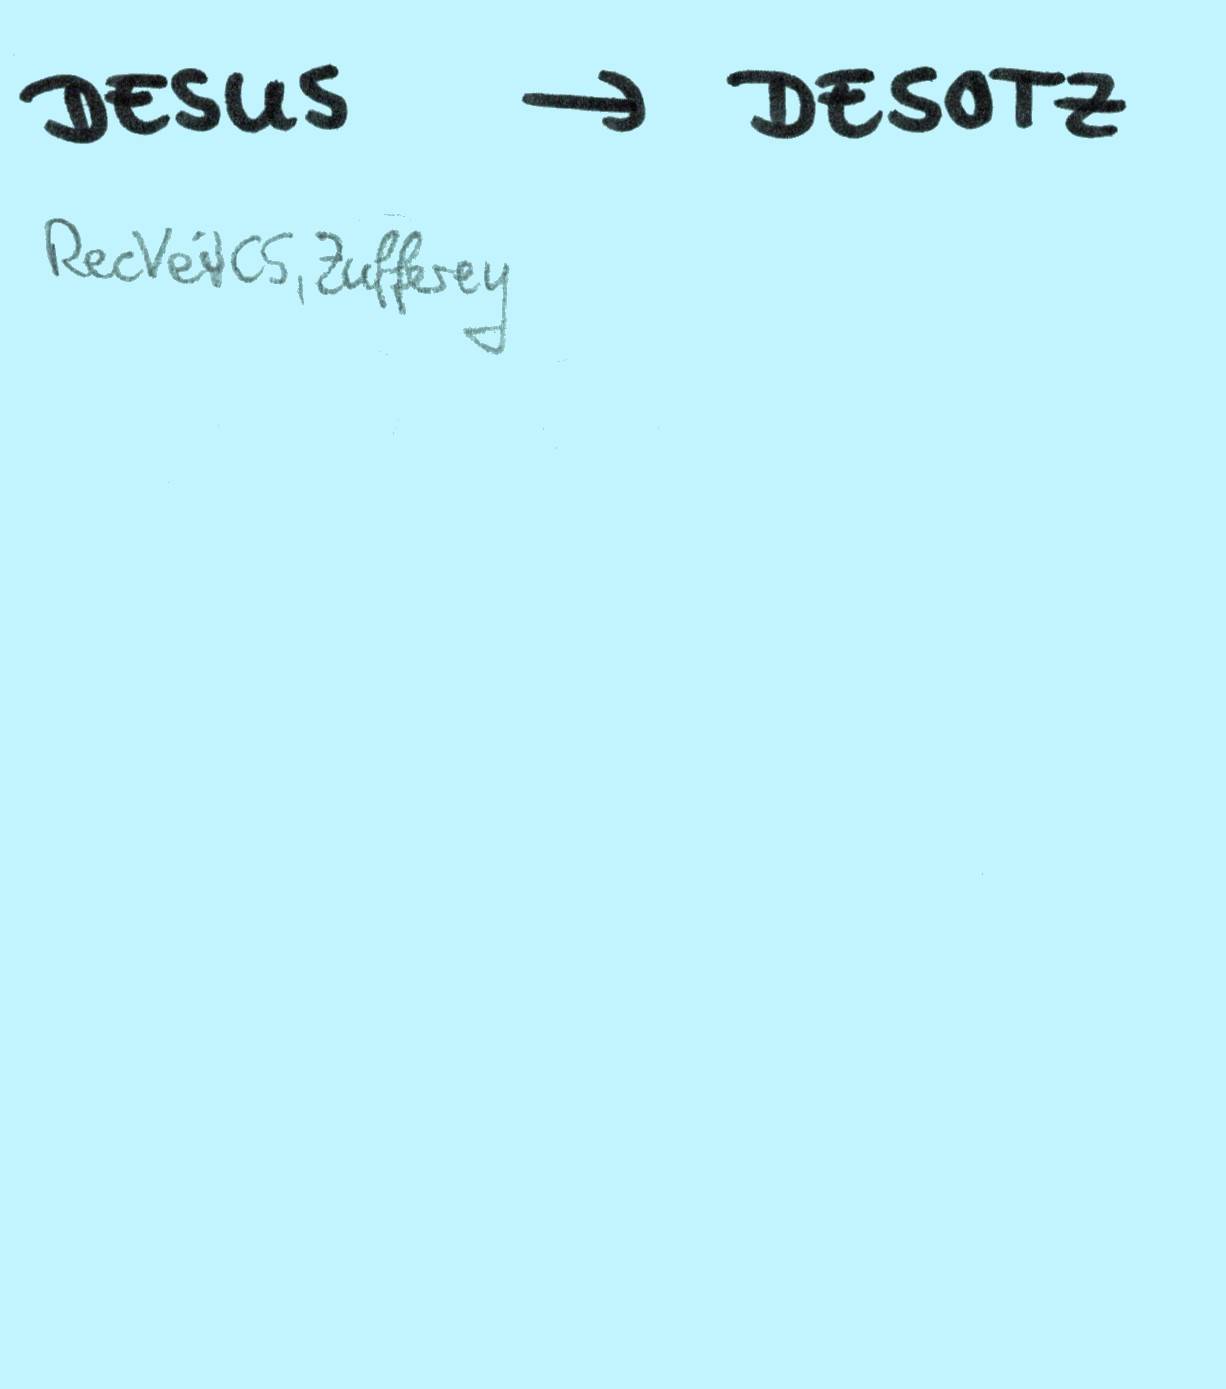 DESUS → DESOTZ
RecVeilCS, Zufferey